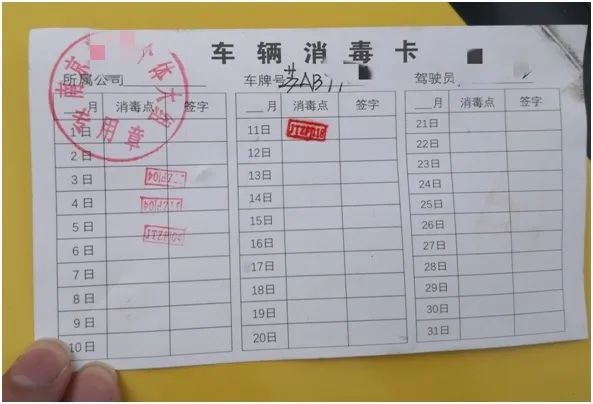 车辆消毒卡
所属公司 车牌号 苏AB 驾驶员
月 消毒点 签字 月 消毒点 签字 月 消毒点 签字
1日 11日 21日
2日 12日 22日
3日 13日 23日
4日 14日 24日
5日 15日 25日
6日 16日 26日
7日 17日 27日
8日 18日 28日
9日 19日 29日
10日 20日 30日
31日
南京
体大
专用章